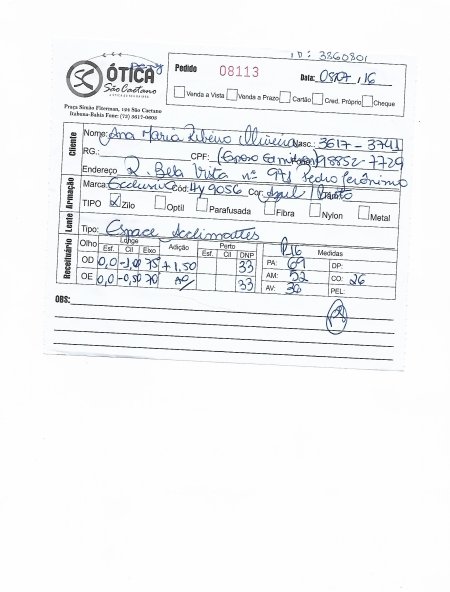 ID: 3360801
SC ÓTICA São Caetano
Pedido 08113 Data: 08/17/16
Venda a Vista Venda a Prazo Cartão Cred. Próprio Cheque
Praça Simão Fiterman, 124 São Caetano
Itabuna-Bahia Fone: (73) 3617-0405
Cliente
Nome: Ana Maria Ribeiro Oliveira Nasc.: 3617-3741
RG.: CPF: 98852-7729
Endereço R. Bela Vista nº Pedro Jerônimo
Armação
Marca: Exclusive Cód: 4y9056 Cor: Azul Preto
TIPO Zilo Optil Parafusada Fibra Nylon Metal
Lente
Tipo: Espace Acclimates
Receituário
Olho Longe Adição Perto DNP R16 Medidas
Esf. Cil Eixo Esf. Cil
OD 0,0 -1,00 75° +1,50 33 PA: 69 DP:
OE 0,0 -0,50 70 AO 33 AM: 52 CO: 26
AV: 36 PEL:
OBS: